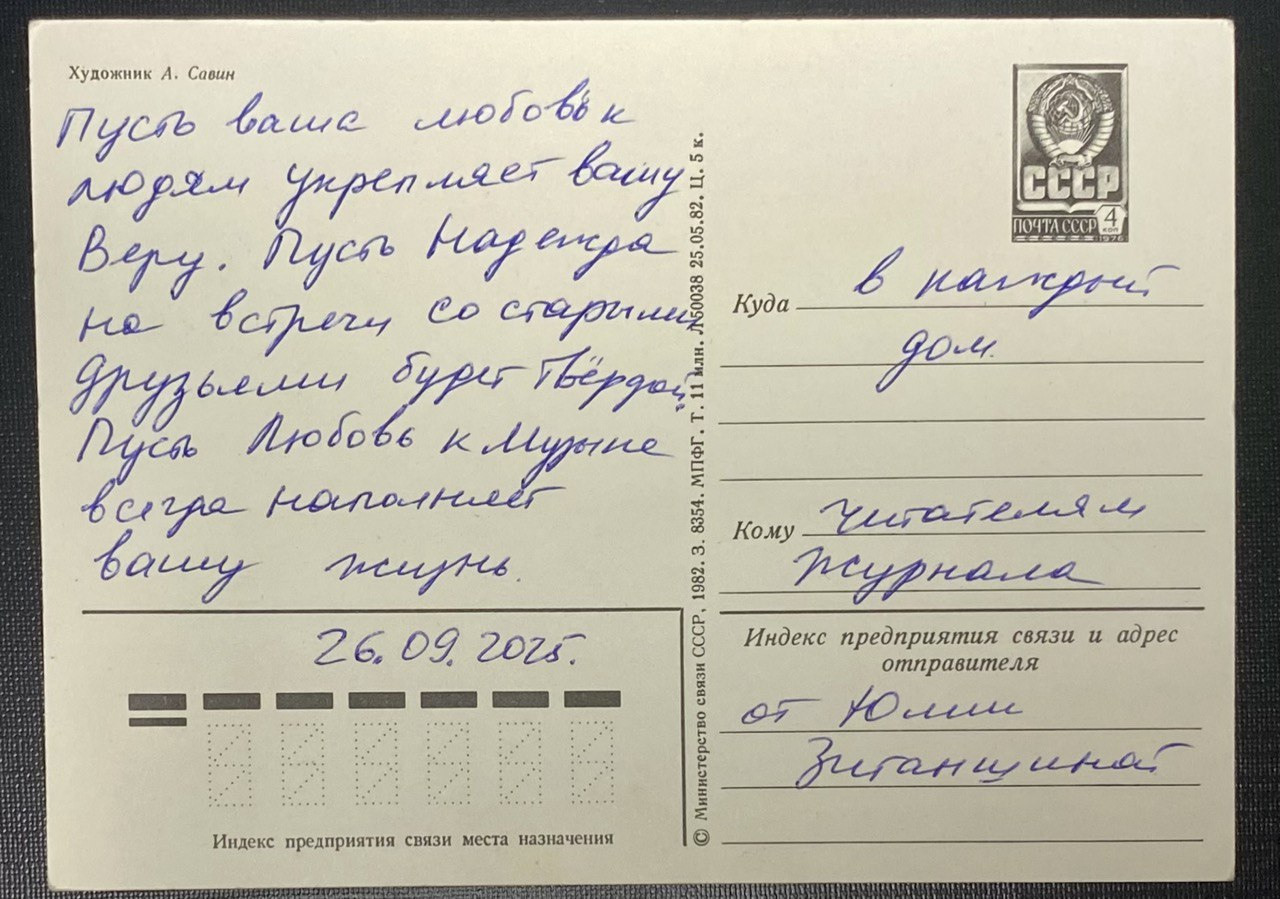 Художник А. Савин
Пусть ваша любовь к
людям укрепляет вашу
Веру. Пусть Надежда
на встречи со старыми
друзьями будет твёрдой.
Пусть Любовь к Музыке
всегда наполняет
вашу жизнь.
26.09.2025.
Индекс предприятия связи места назначения
© Министерство связи СССР, 1982. З. 8354. МПФГ. Т. 11 млн. Л 50038 25.05.82. Ц. 5 к.
СССР
ПОЧТА СССР 4 КОП
1976
Куда в каждый
дом.
Кому читателям
журнала
Индекс предприятия связи и адрес
отправителя
от Юлии
Зиганшиной